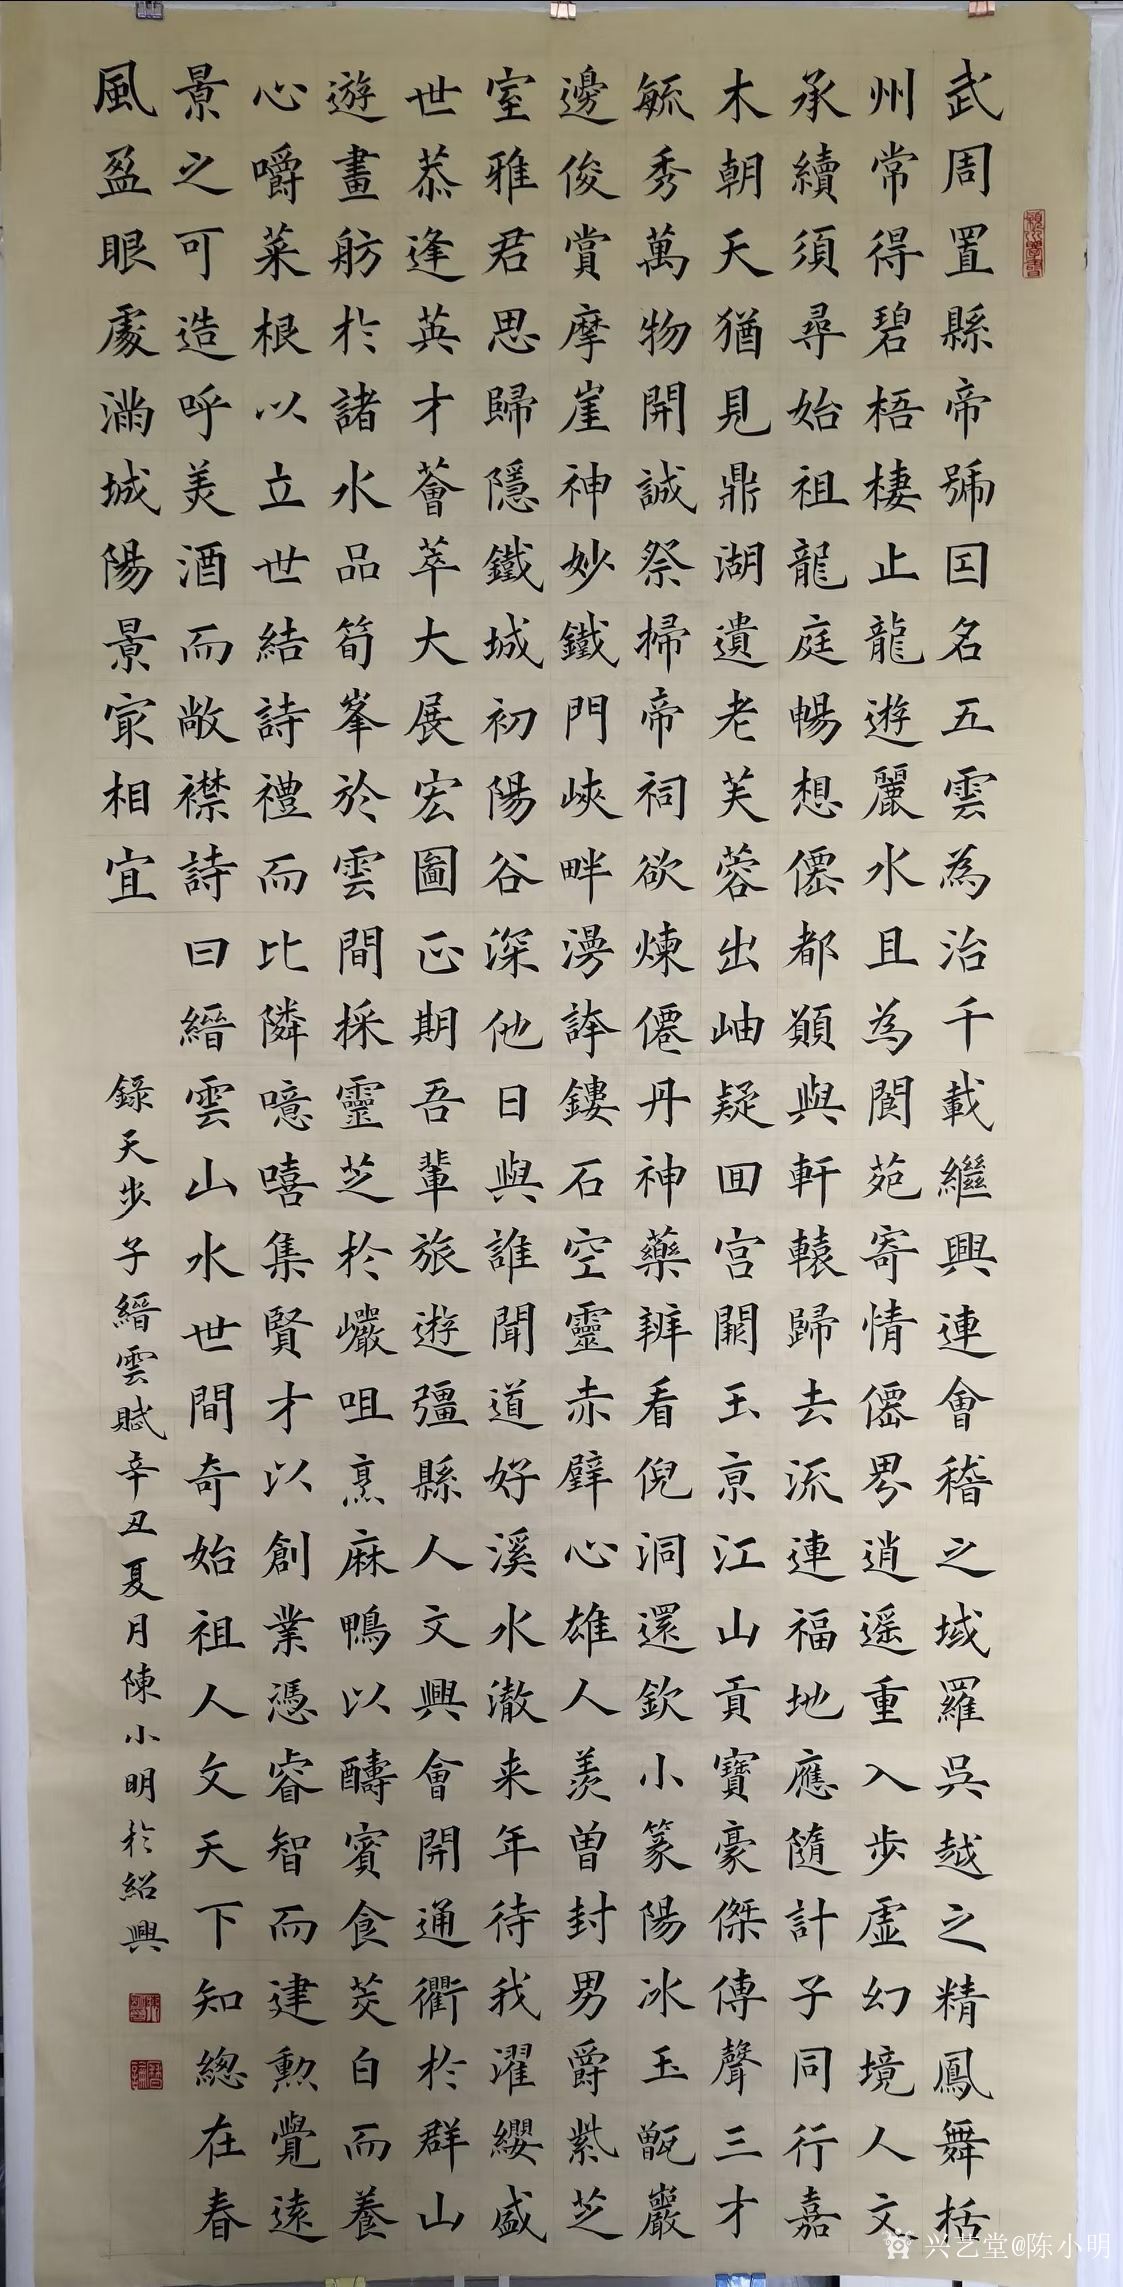 武周置縣帝號国名五雲為治千載繼興連會稽之域羅吳越之精鳳舞括
州常得碧梧棲止龍遊麗水且為閬苑寄情僊界逍遥重入步虛幻境人文
承續須尋始祖龍庭暢想僊都願與軒轅歸去流連福地應隨計子同行嘉
木朝天猶見鼎湖遺老芙蓉出岫疑回宮闕玉京江山貢寶豪傑傳聲三才
毓秀萬物開誠祭掃帝祠欲煉僊丹神藥辨看倪洞還欽小篆陽冰玉甑巖
邊俊賞摩崖神妙鐵門峽畔漫誇鏤石空靈赤壁心雄人羨曾封男爵紫芝
室雅君思歸隱鐵城初陽谷深他日與誰聞道好溪水澈来年待我濯纓盛
世恭逢英才薈萃大展宏圖正期吾輩旅遊彊縣人文興會開通衢於群山
遊畫舫於諸水品筍峯於雲間採靈芝於巘咀烹麻鴨以醻賓食茭白而養
心嚼菜根以立世結詩禮而比隣噫嘻集賢才以創業憑睿智而建勲覺遠
景之可造呼美酒而敞襟詩曰縉雲山水世間奇始祖人文天下知總在春
風盈眼處滿城陽景㝡相宜
錄天步子縉雲賦辛丑夏月陳小明於紹興
兴艺堂@陈小明